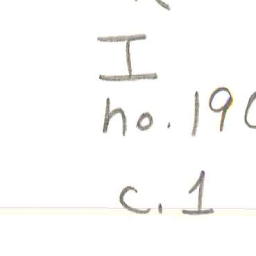 I
no. 190
c. 1